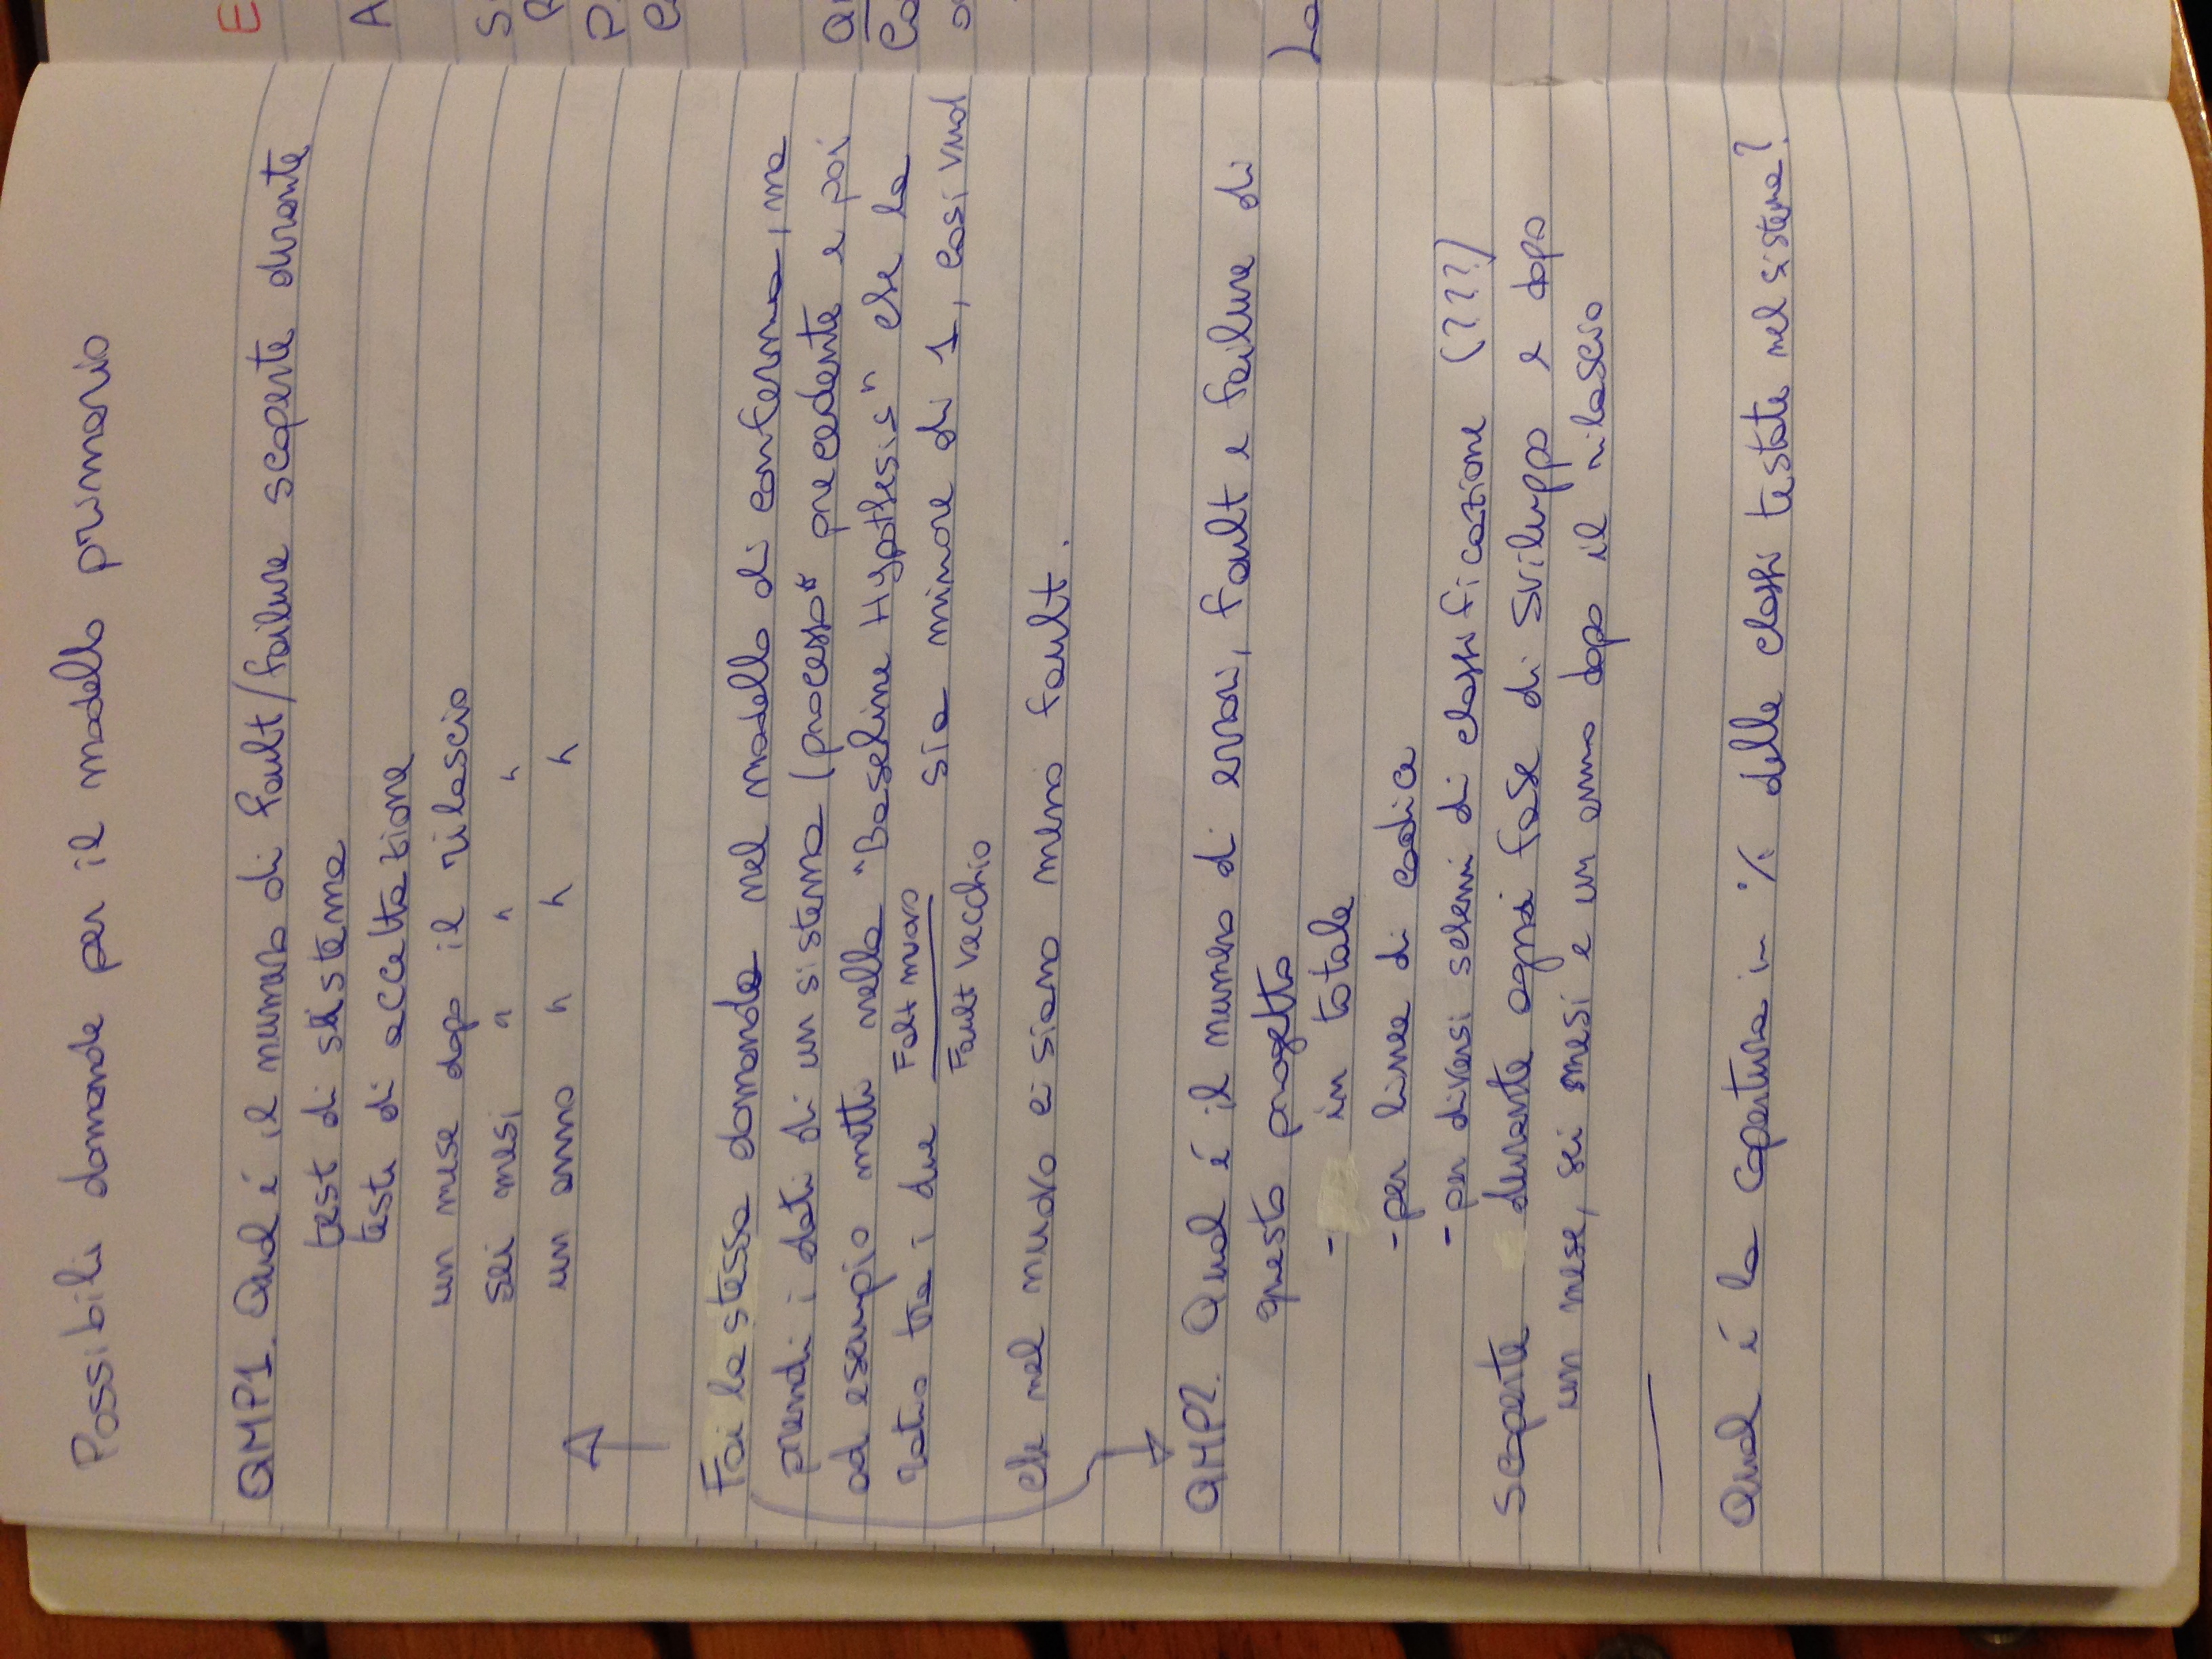 Possibili domande per il modello primario
QMP1. Qual é il numero di fault/failure scoperte durante
test di sistema
test di accettazione
un mese dopo il rilascio
sei mesi " " "
un anno " " "
Fai la stessa domanda nel modello di conferma, ma
prendi i dati di un sistema (processo precedente e poi
ad esempio metti nella "Baseline Hypothesis" che la
ratio tra i due Falt nuovo
Fault vecchio
sia minore di 1, cosi vuol
che nel nuovo ci siano meno fault.
QMP2. Qual é il numero di errori, fault e failure di
questo progetto
- in totale
- per linee di codice
- per diversi schemi di classificazione (???)
scoperte durante ogni fase di sviluppo e dopo
un mese, sei mesi e un anno dopo il rilascio
Qual é la copertura in % delle classi testate nel sistema?
E
A
S
R
P
Q
Co
Lo